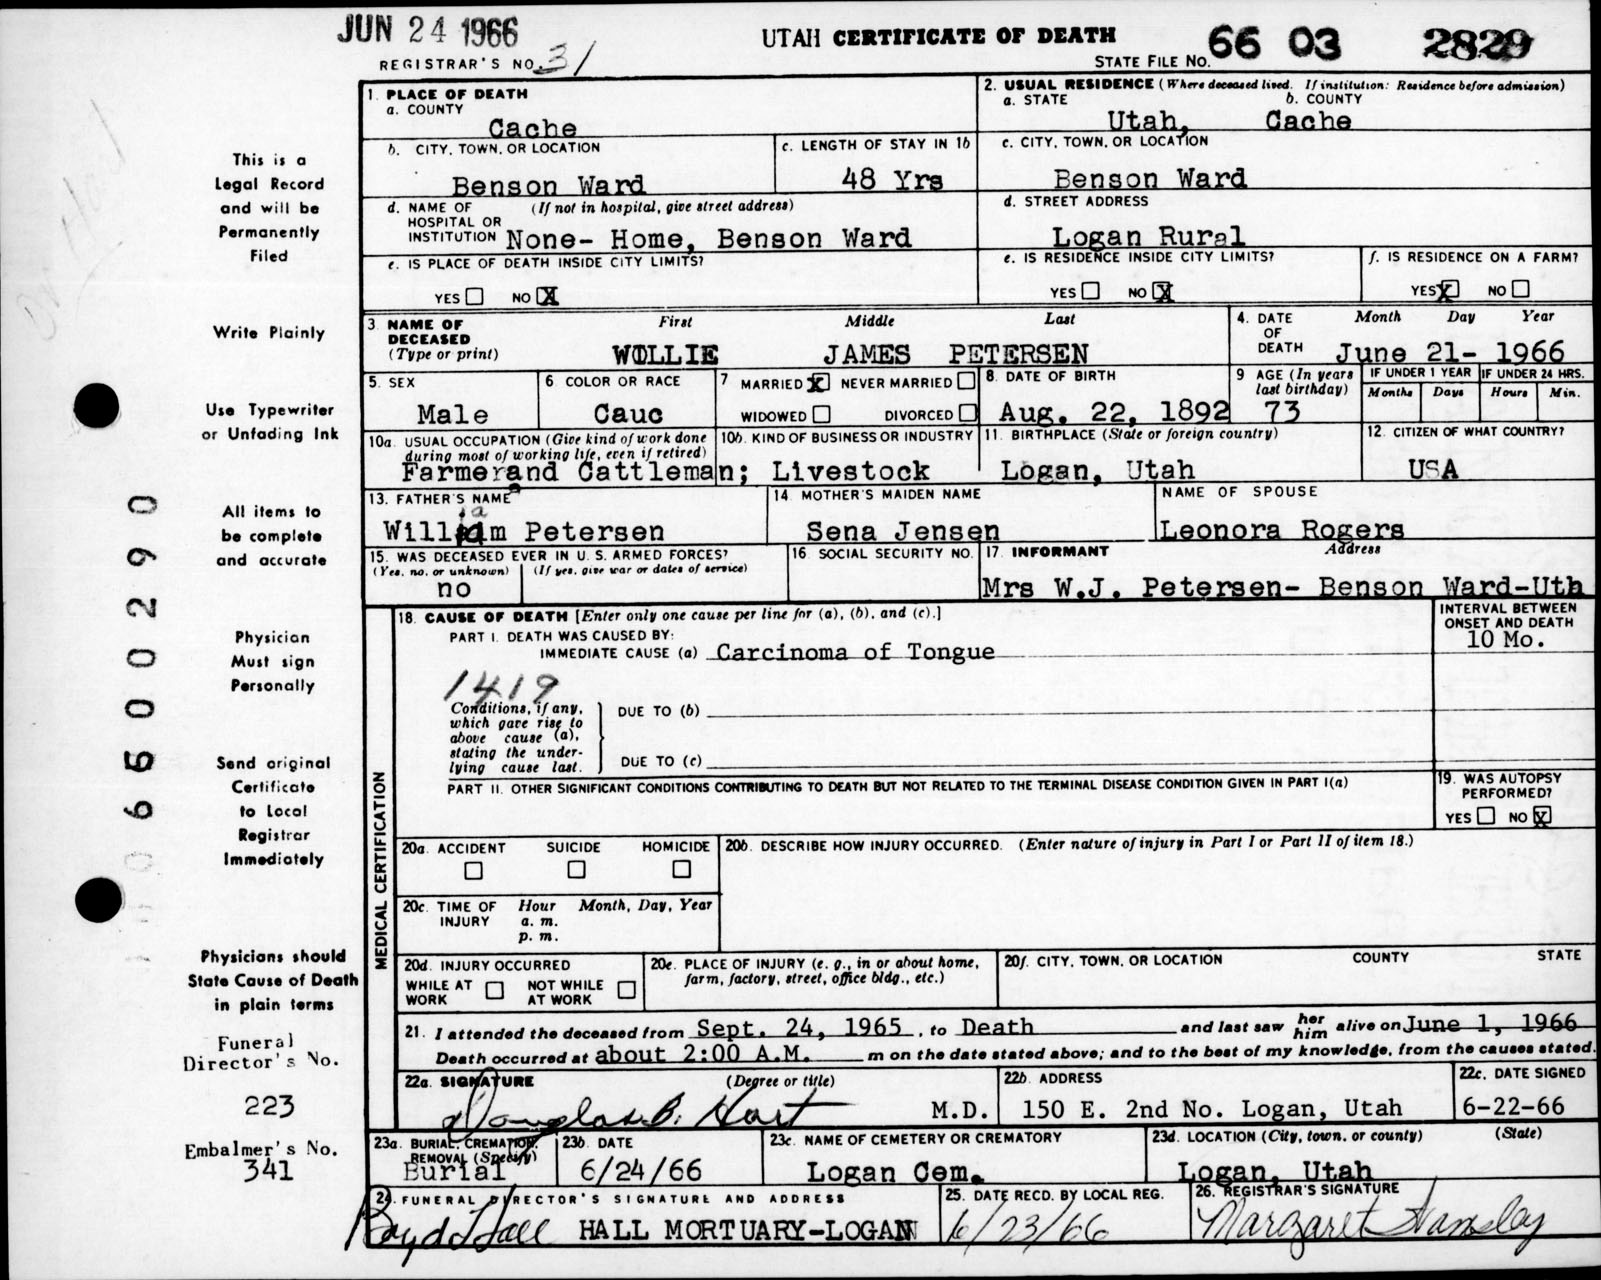 JUN 24 1966
REGISTRAR'S NO. 31
UTAH CERTIFICATE OF DEATH
STATE FILE NO. 66 03 2829
This is a
Legal Record
and will be
Permanently
Filed
Write Plainly
Use Typewriter
or Unfading Ink
All items to
be complete
and accurate
Physician
Must sign
Personally
Send original
Certificate
to Local
Registrar
Immediately
Physicians should
State Cause of Death
in plain terms
Funeral
Director's No.
223
Embalmer's No.
341
06500290
1. PLACE OF DEATH
a. COUNTY
Cache
b. CITY, TOWN, OR LOCATION
Benson Ward
c. LENGTH OF STAY IN 1b
48 Yrs
d. NAME OF HOSPITAL OR INSTITUTION (If not in hospital, give street address)
None- Home, Benson Ward
e. IS PLACE OF DEATH INSIDE CITY LIMITS?
YES NO X
2. USUAL RESIDENCE (Where deceased lived. If institution: Residence before admission)
a. STATE b. COUNTY
Utah, Cache
c. CITY, TOWN, OR LOCATION
Benson Ward
d. STREET ADDRESS
Logan Rural
e. IS RESIDENCE INSIDE CITY LIMITS?
YES NO X
f. IS RESIDENCE ON A FARM?
YES X NO
3. NAME OF DECEASED (Type or print)
First Middle Last
WOLLIE JAMES PETERSEN
4. DATE OF DEATH
Month Day Year
June 21- 1966
5. SEX
Male
6. COLOR OR RACE
Cauc
7 MARRIED X NEVER MARRIED
WIDOWED DIVORCED
8. DATE OF BIRTH
Aug. 22, 1892
9 AGE (In years last birthday)
73
IF UNDER 1 YEAR
Months Days
IF UNDER 24 HRS.
Hours Min.
10a. USUAL OCCUPATION (Give kind of work done during most of working life, even if retired)
Farmer and Cattleman;
10b. KIND OF BUSINESS OR INDUSTRY
Livestock
11. BIRTHPLACE (State or foreign country)
Logan, Utah
12. CITIZEN OF WHAT COUNTRY?
USA
13. FATHER'S NAME
William Petersen
14 MOTHER'S MAIDEN NAME
Sena Jensen
NAME OF SPOUSE
Leonora Rogers
15. WAS DECEASED EVER IN U. S. ARMED FORCES?
(Yes, no, or unknown) (If yes, give war or dates of service)
no
16. SOCIAL SECURITY NO.
17. INFORMANT Address
Mrs W.J. Petersen- Benson Ward-Uth
MEDICAL CERTIFICATION
18. CAUSE OF DEATH [Enter only one cause per line for (a), (b), and (c).]
PART I. DEATH WAS CAUSED BY:
IMMEDIATE CAUSE (a) Carcinoma of Tongue
INTERVAL BETWEEN ONSET AND DEATH
10 Mo.
1419
Conditions, if any,
which gave rise to
above cause (a),
stating the under-
lying cause last.
DUE TO (b)
DUE TO (c)
PART II. OTHER SIGNIFICANT CONDITIONS CONTRIBUTING TO DEATH BUT NOT RELATED TO THE TERMINAL DISEASE CONDITION GIVEN IN PART I(a)
19. WAS AUTOPSY PERFORMED?
YES NO X
20a. ACCIDENT SUICIDE HOMICIDE
20b. DESCRIBE HOW INJURY OCCURRED. (Enter nature of injury in Part I or Part II of item 18.)
20c. TIME OF INJURY
Hour Month, Day, Year
a. m.
p. m.
20d. INJURY OCCURRED
WHILE AT WORK NOT WHILE AT WORK
20e. PLACE OF INJURY (e. g., in or about home, farm, factory, street, office bldg., etc.)
20f. CITY, TOWN, OR LOCATION COUNTY STATE
21. I attended the deceased from Sept. 24, 1965, to Death and last saw her him alive on June 1, 1966
Death occurred at about 2:00 A.M. m on the date stated above; and to the best of my knowledge, from the causes stated.
22a. SIGNATURE (Degree or title)
Douglas B. Hart M.D.
22b. ADDRESS
150 E. 2nd No. Logan, Utah
22c. DATE SIGNED
6-22-66
23a. BURIAL, CREMATION, REMOVAL (Specify)
Burial
23b. DATE
6/24/66
23c. NAME OF CEMETERY OR CREMATORY
Logan Cem.
23d. LOCATION (City, town, or county) (State)
Logan, Utah
24. FUNERAL DIRECTOR'S SIGNATURE AND ADDRESS
Boyd L Hall HALL MORTUARY-LOGAN
25. DATE RECD. BY LOCAL REG.
6/23/66
26. REGISTRAR'S SIGNATURE
Margaret